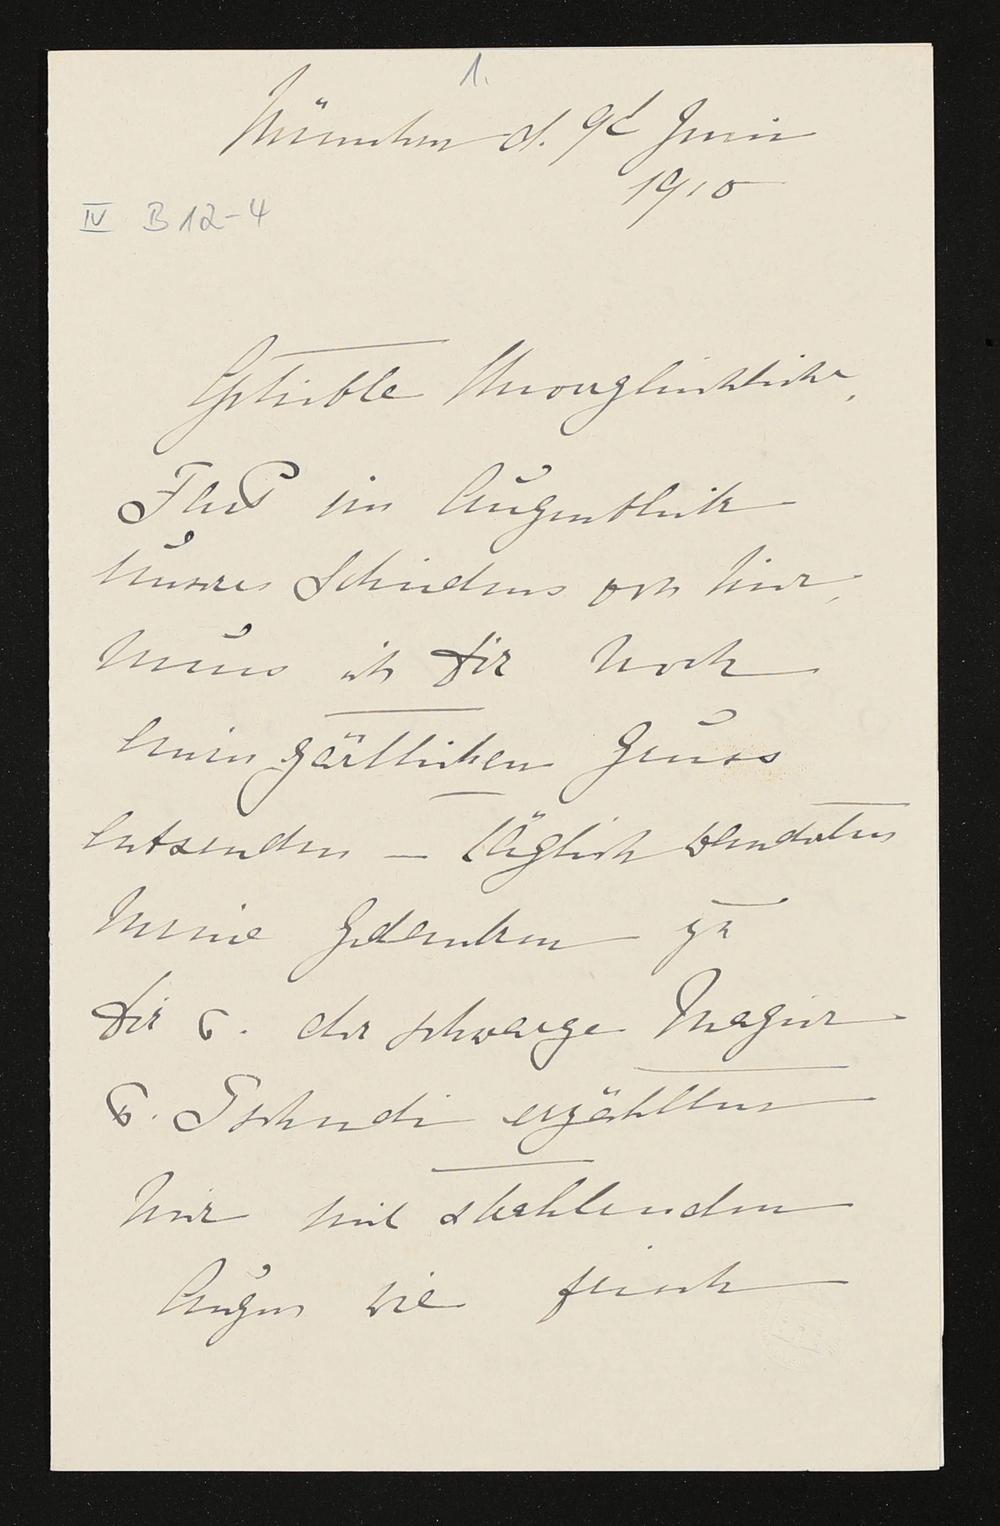 1.
München d. 9t Juni
1910
IV B 12-4
Geliebte Unvergleichliche,
Fast im Augenblick
unseres Scheidens von hier,
muss ich Dir noch
einen zärtlichen Gruss
entsenden — täglich wandelten
meine Gedanken zu
Dir u. der schwarze Magier
u. Tschudi erzählten
mir mit strahlenden
Augen wie frisch